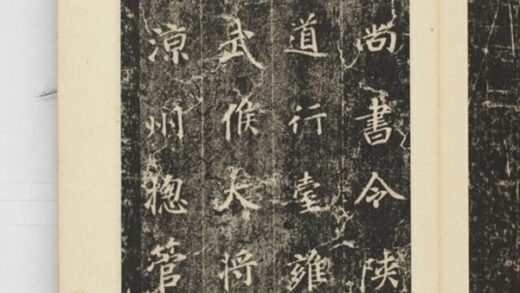 尚書令陝
道行臺雍
武候大将
涼州揔管